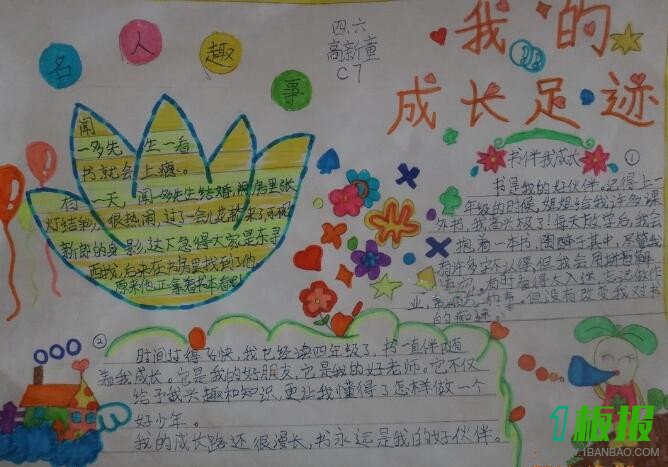 名人趣事
四.六
高新童
C7
我的
成长足迹
闻
一多先生一看
书就会上瘾。
有一天,闻一多先生结婚,房里张
灯结彩,很热闹,过了一会儿花轿来了,可
新郎的身影,这下急得大家是东寻
西找,后来在书房里找到了他,
原来他正拿着书本看呢!
书伴我成长
①
书是我的好伙伴。记得上一
年级的时候,姐姐给我许多课
外书,我高兴极了!每天放学后,我会
抱着一本书,围于其中,尽管我
有许多字不认得,但我会用拼音解
有时看得太入迷,忘记做作
业,但没有改变我对书
的痴迷。
②
时间过得飞快,我已经读四年级了,书一直伴随
着我成长。它是我的好朋友,它是我的好老师。它不仅
给予我兴趣和知识,更让我懂得了怎样做一个
好少年。
我的成长路还很漫长,书永远是我的好伙伴。
1板报
WWW.1BANBAO.COM